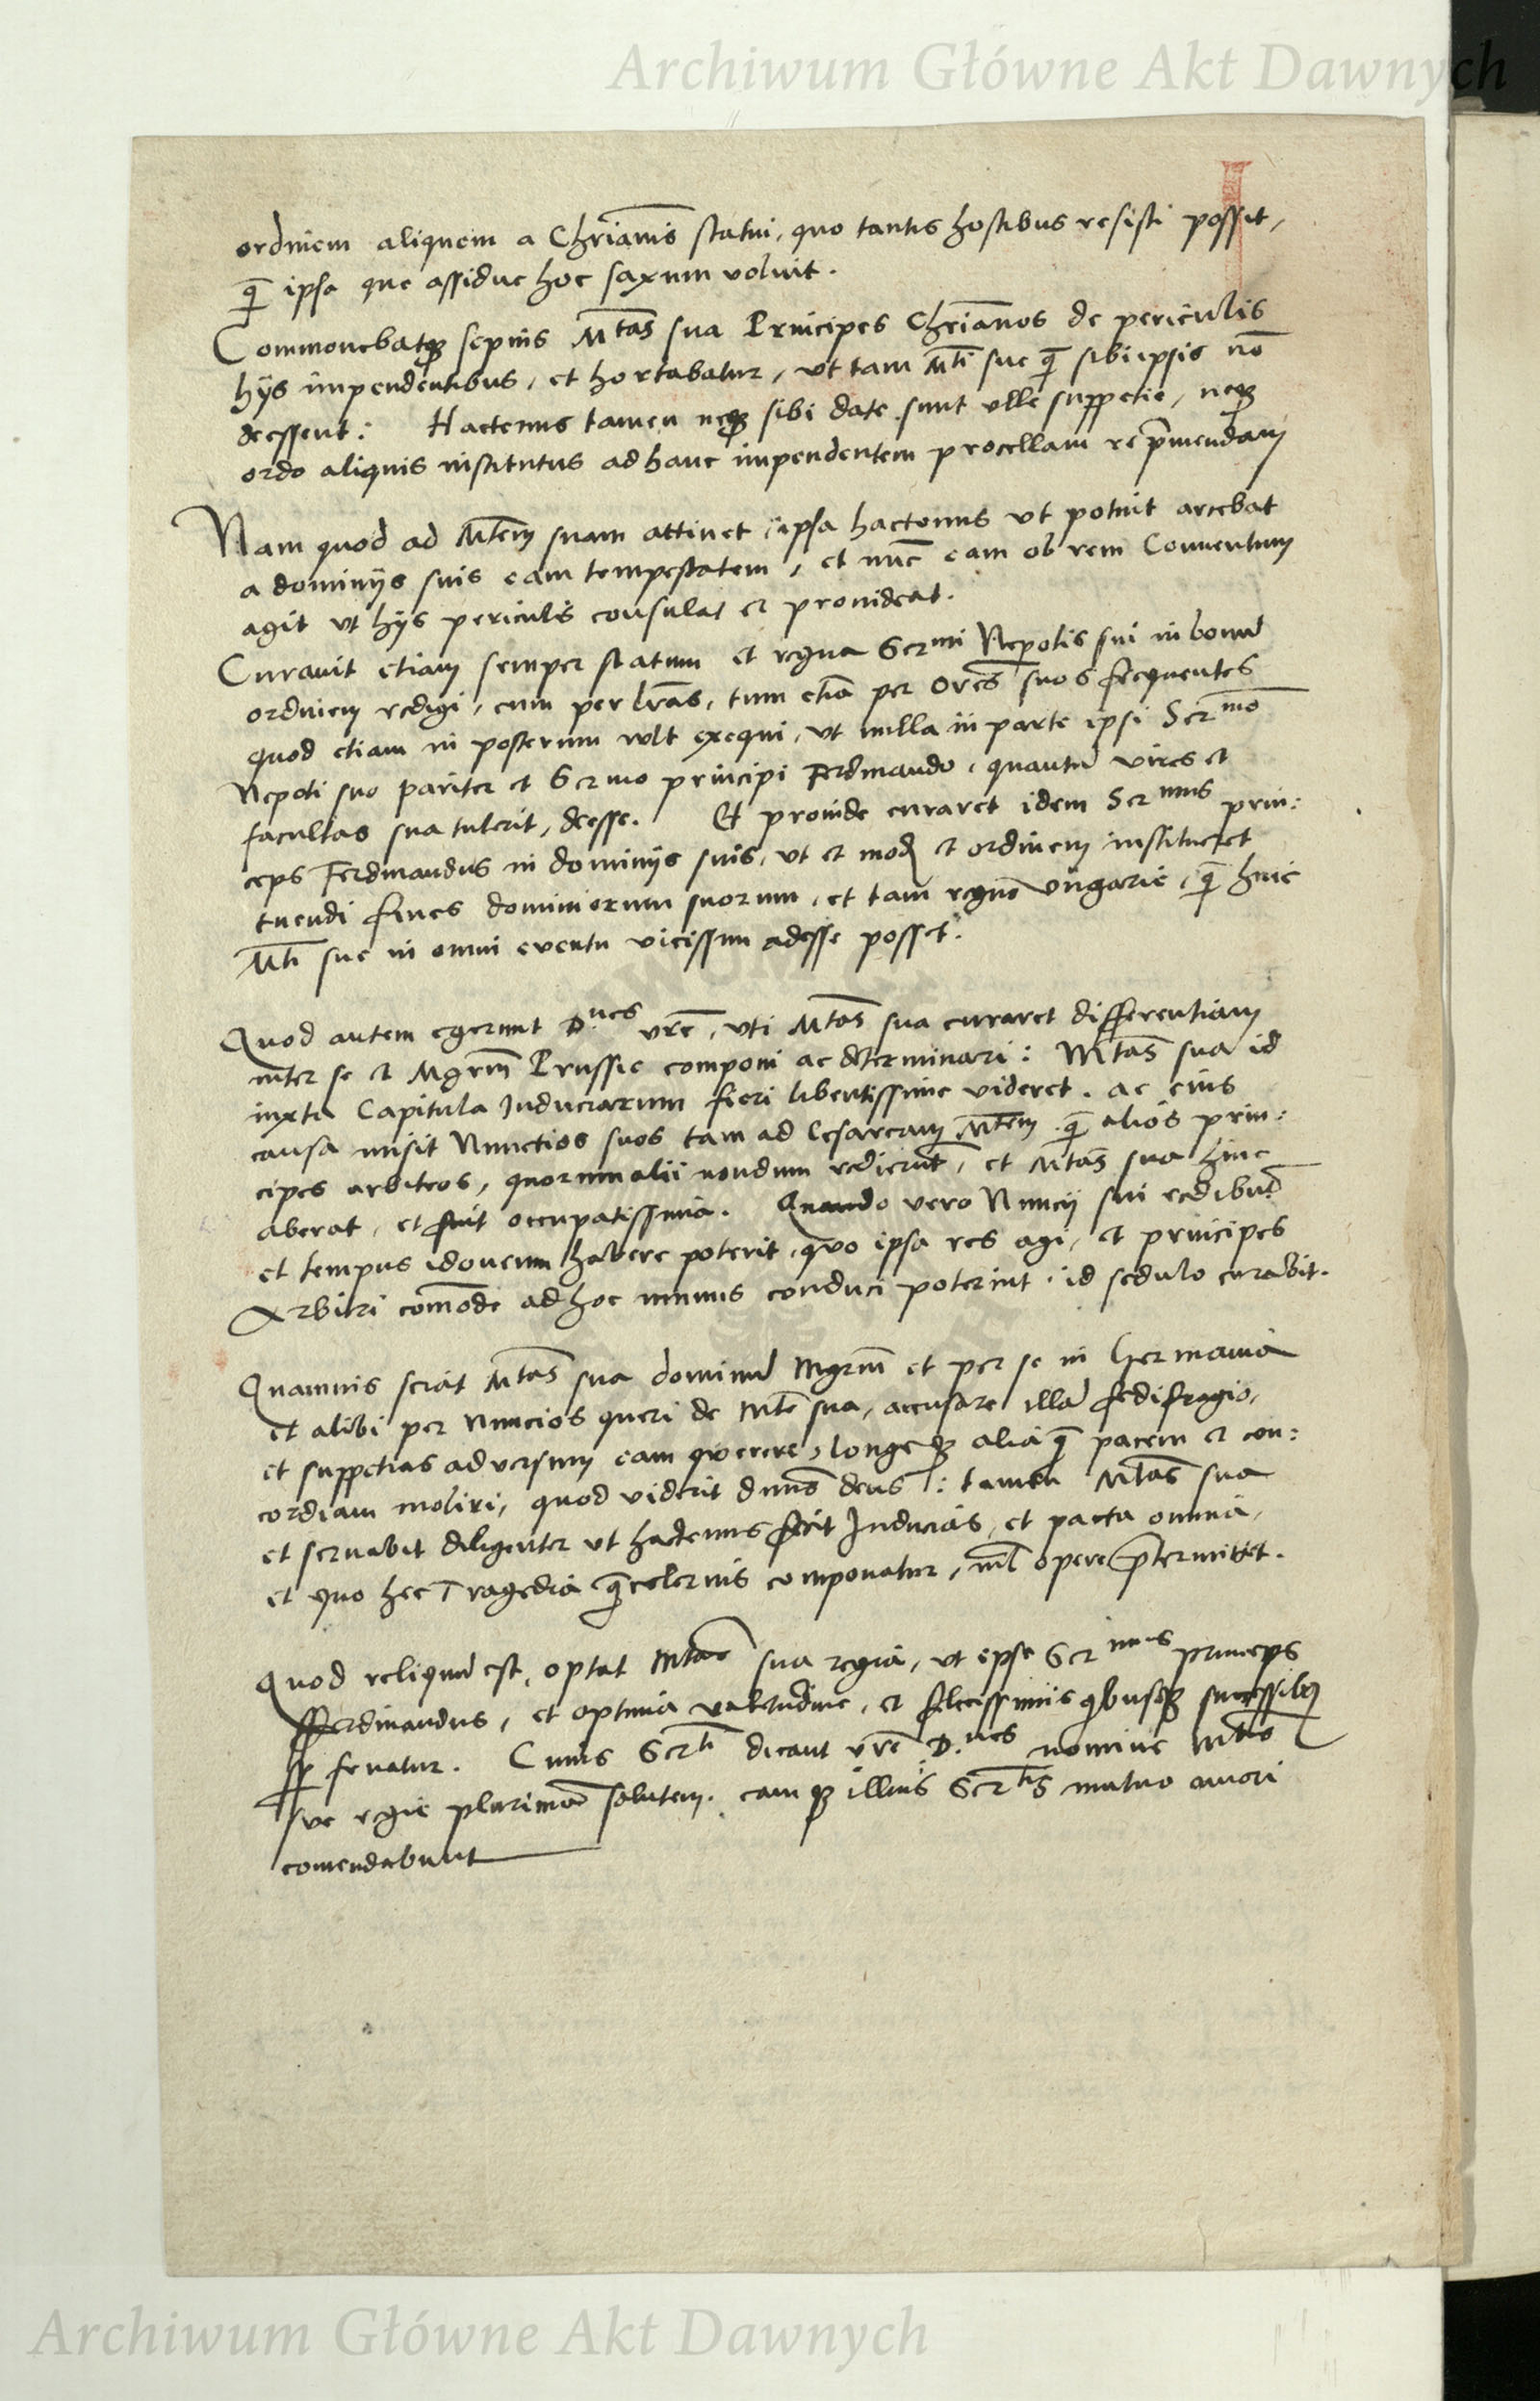 Archiwum Główne Akt Dawnych
ordinem aliquem a Chrianis statui, quo tantis hostibus resisti possit,
q̄ ipsa que assidue hoc saxum voluit.
Commonebatqȝ sepius Mtas sua Principes Chrianos de periculis
hijs impendentibus, et hortabatur, ut tam Mti sue q̄ sibiipsis nō
deessent: Hactenus tamen neqȝ sibi date sunt ulle suppetie, neqȝ
ordo aliquis institutus ad hanc impendentem procellam rep̄mendam
Nam quod ad Mtem suam attinet, ipsa hactenus ut potuit arcebat
a dominijs suis eam tempestatem, et nūc eam ob rem Conventum
agit ut hijs periculis consulat et provideat.
Curavit etiam semper statum et regna Sermi Nepotis sui in bonū
ordinem redigi, cum per lras, tum etiā per Ores suos frequentes
quod etiam in posterum vult exequi, ut nulla in parte ipsi Sermo
Nepoti suo pariter et Sermo principi Ferdinando, quantū vires et
facultas sua tulerit, deesse. Et proinde curaret idem Sermus prin:
ceps Ferdinandus in dominijs suis, ut et modȝ et ordinem institueret
tuendi fines dominiorum suorum, et tam regno Ungarie, q̄ huic
Mti sue in omni eventu vicissim adesse posset.
Quod autem egerunt D.nes vre, uti Mtas sua curaret differentiam
inter se et Mgrm Prussie componi ac determinari: Mtas sua id
iuxta Capitula Induciarum fieri libentissime videret. ac eius
causa misit Nunctios suos tam ad Cesaream Mtem q̄ alios prin:
cipes arbitros, quorum alii nondum redierunt, et Mtas sua hinc
aberat, et fuit occupatissima. Quando vero Nuncij sui redibūt
et tempus idoneum habere poterit, quo ipsa res agi, et principes
Arbitri comode ad hoc munus conduci poterint, id sedulo curabit.
Quamvis sciat Mtas sua dominū Mgrm et per se in Germania
et alibi per Nuncios queri de Mte sua, accusare illā fedifragio,
et suppetias adversum eam querere, longeqȝ alia q̄ pacem et con:
cordiam moliri, quod viderit dnus deus: tamen Mtas sua
et servabit diligenter ut hactenus fecit Inducias, et pacta omnia,
et quo hec Tragedia q̄celerius componatur, nil opere p̄termittet.
Quod reliquū est, optat Mtas sua regia, ut ipse Sermus princeps
Fferdinandus, et optima valetudine, et felicissimis quibusqȝ successibȝ
sp fruatur. Cuius Serti dicant vre D.nes nomine Mtis
sue regie plurimā salutem. eamqȝ illius Sertis mutuo amori
comendabunt
Archiwum Główne Akt Dawnych